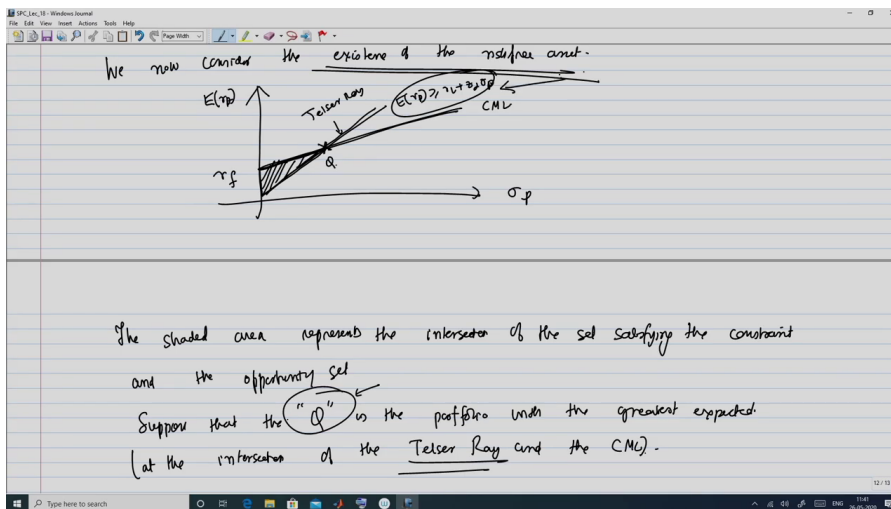 SPC_Lec_18 - Windows Journal
File Edit View Insert Actions Tools Help
Page Width
We now consider the existene of the riskfree asset.
E(rp)
Telser Ray
E(rp) ≥ rL + zα σp
CML
Q
rf
σp
The shaded area represents the intersection of the set satisfying the constraint
and the opportunity set
Suppose that the "Q" is the portfolio with the greatest expected.
(at the intersection of the Telser Ray and the CML).
12 / 13
Type here to search
ENG
11:41
26-05-2020